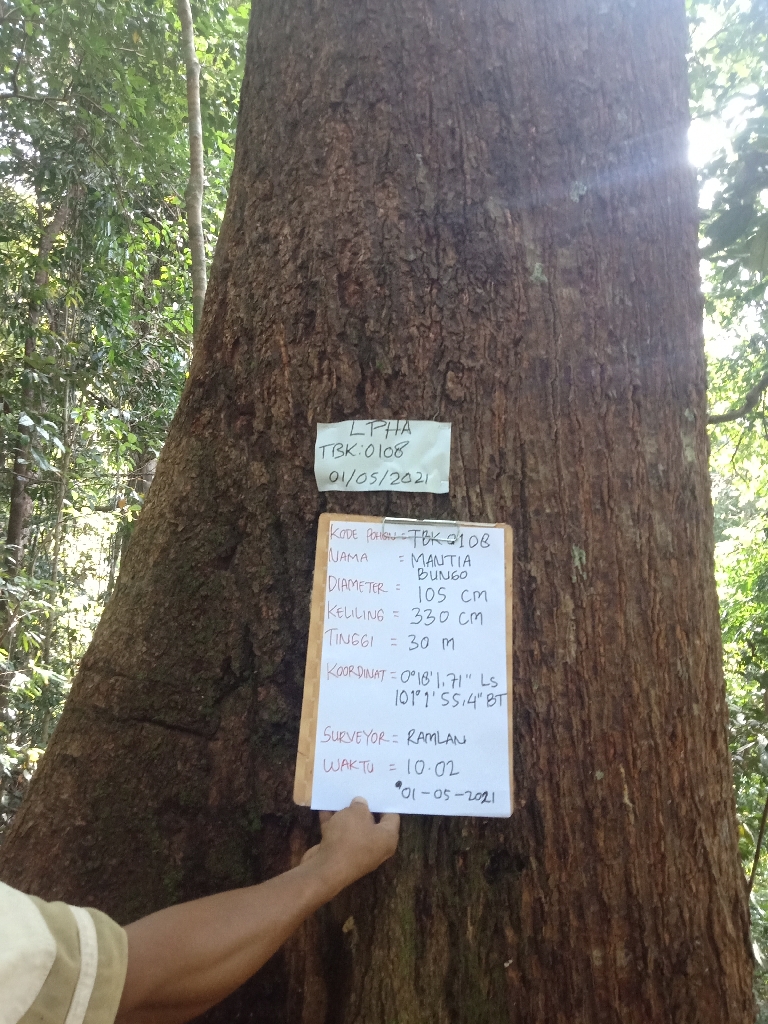 LPHA
TBK:0108
01/05/2021
KODE POHON = TBK 0108
NAMA = MANTIA
BUNGO
DIAMETER = 105 cm
KELILING = 330 cm
TINGGI = 30 m
KOORDINAT = 0°18'1.71" Ls
101°1'55.4" BT
SURVEYOR = RAMLAN
WAKTU = 10.02
01-05-2021